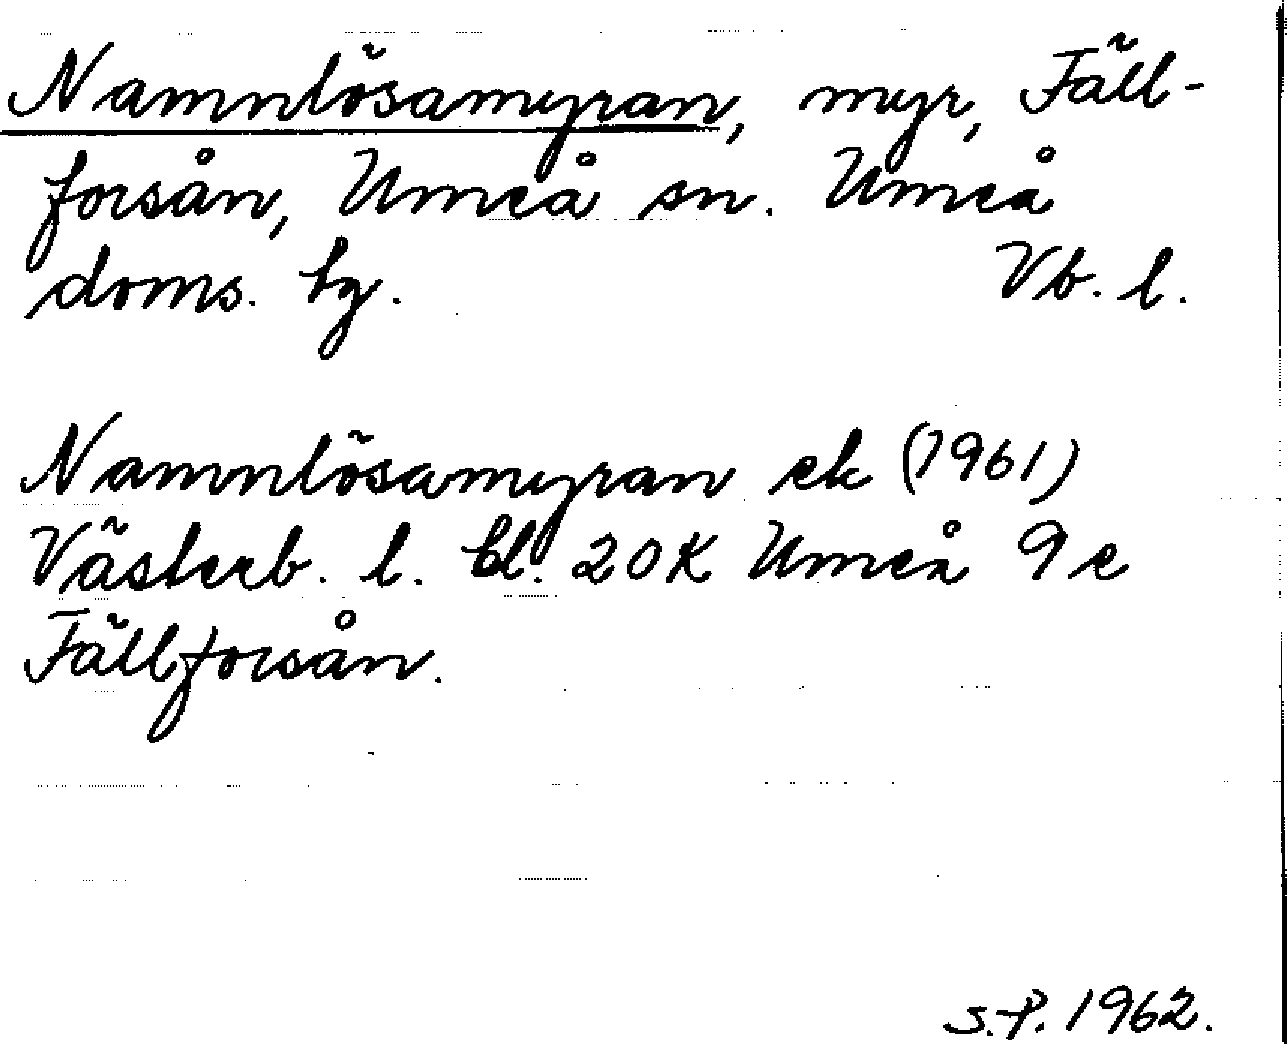 Namnlösamyran, myr, Fäll-
forsån, Umeå sn. Umeå
doms. tg. Vb. l.
Namnlösamyran ek (1961)
Västerb. l. bl. 20K Umeå 9e
Fällforsån.
S.P. 1962.